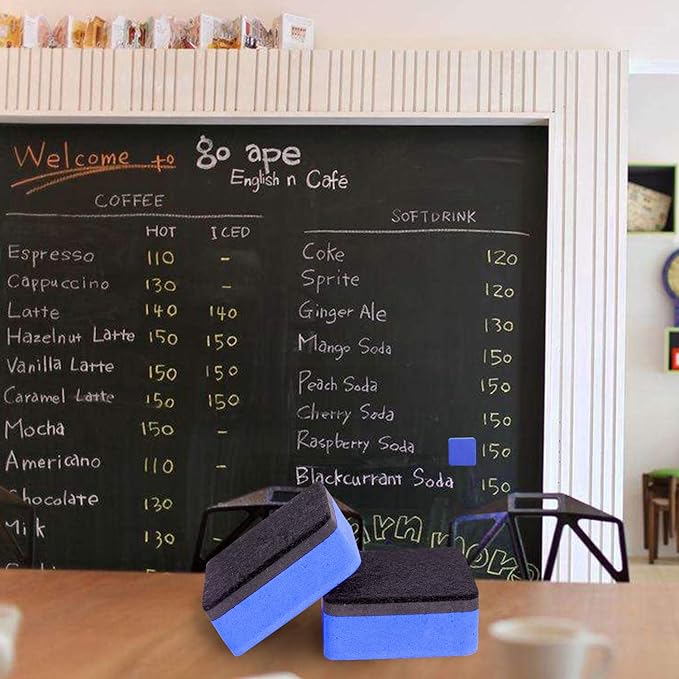 Welcome to go ape
English n Café
COFFEE
HOT ICED
Espresso 110 -
Cappuccino 130 -
Latte 140 140
Hazelnut Latte 150 150
Vanilla Latte 150 150
Caramel Latte 150 150
Mocha 150 -
Americano 110 -
Chocolate 130
Milk 130
SOFTDRINK
Coke 120
Sprite 120
Ginger Ale 130
Mango Soda 150
Peach Soda 150
Cherry Soda 150
Raspberry Soda 150
Blackcurrant Soda 150
more